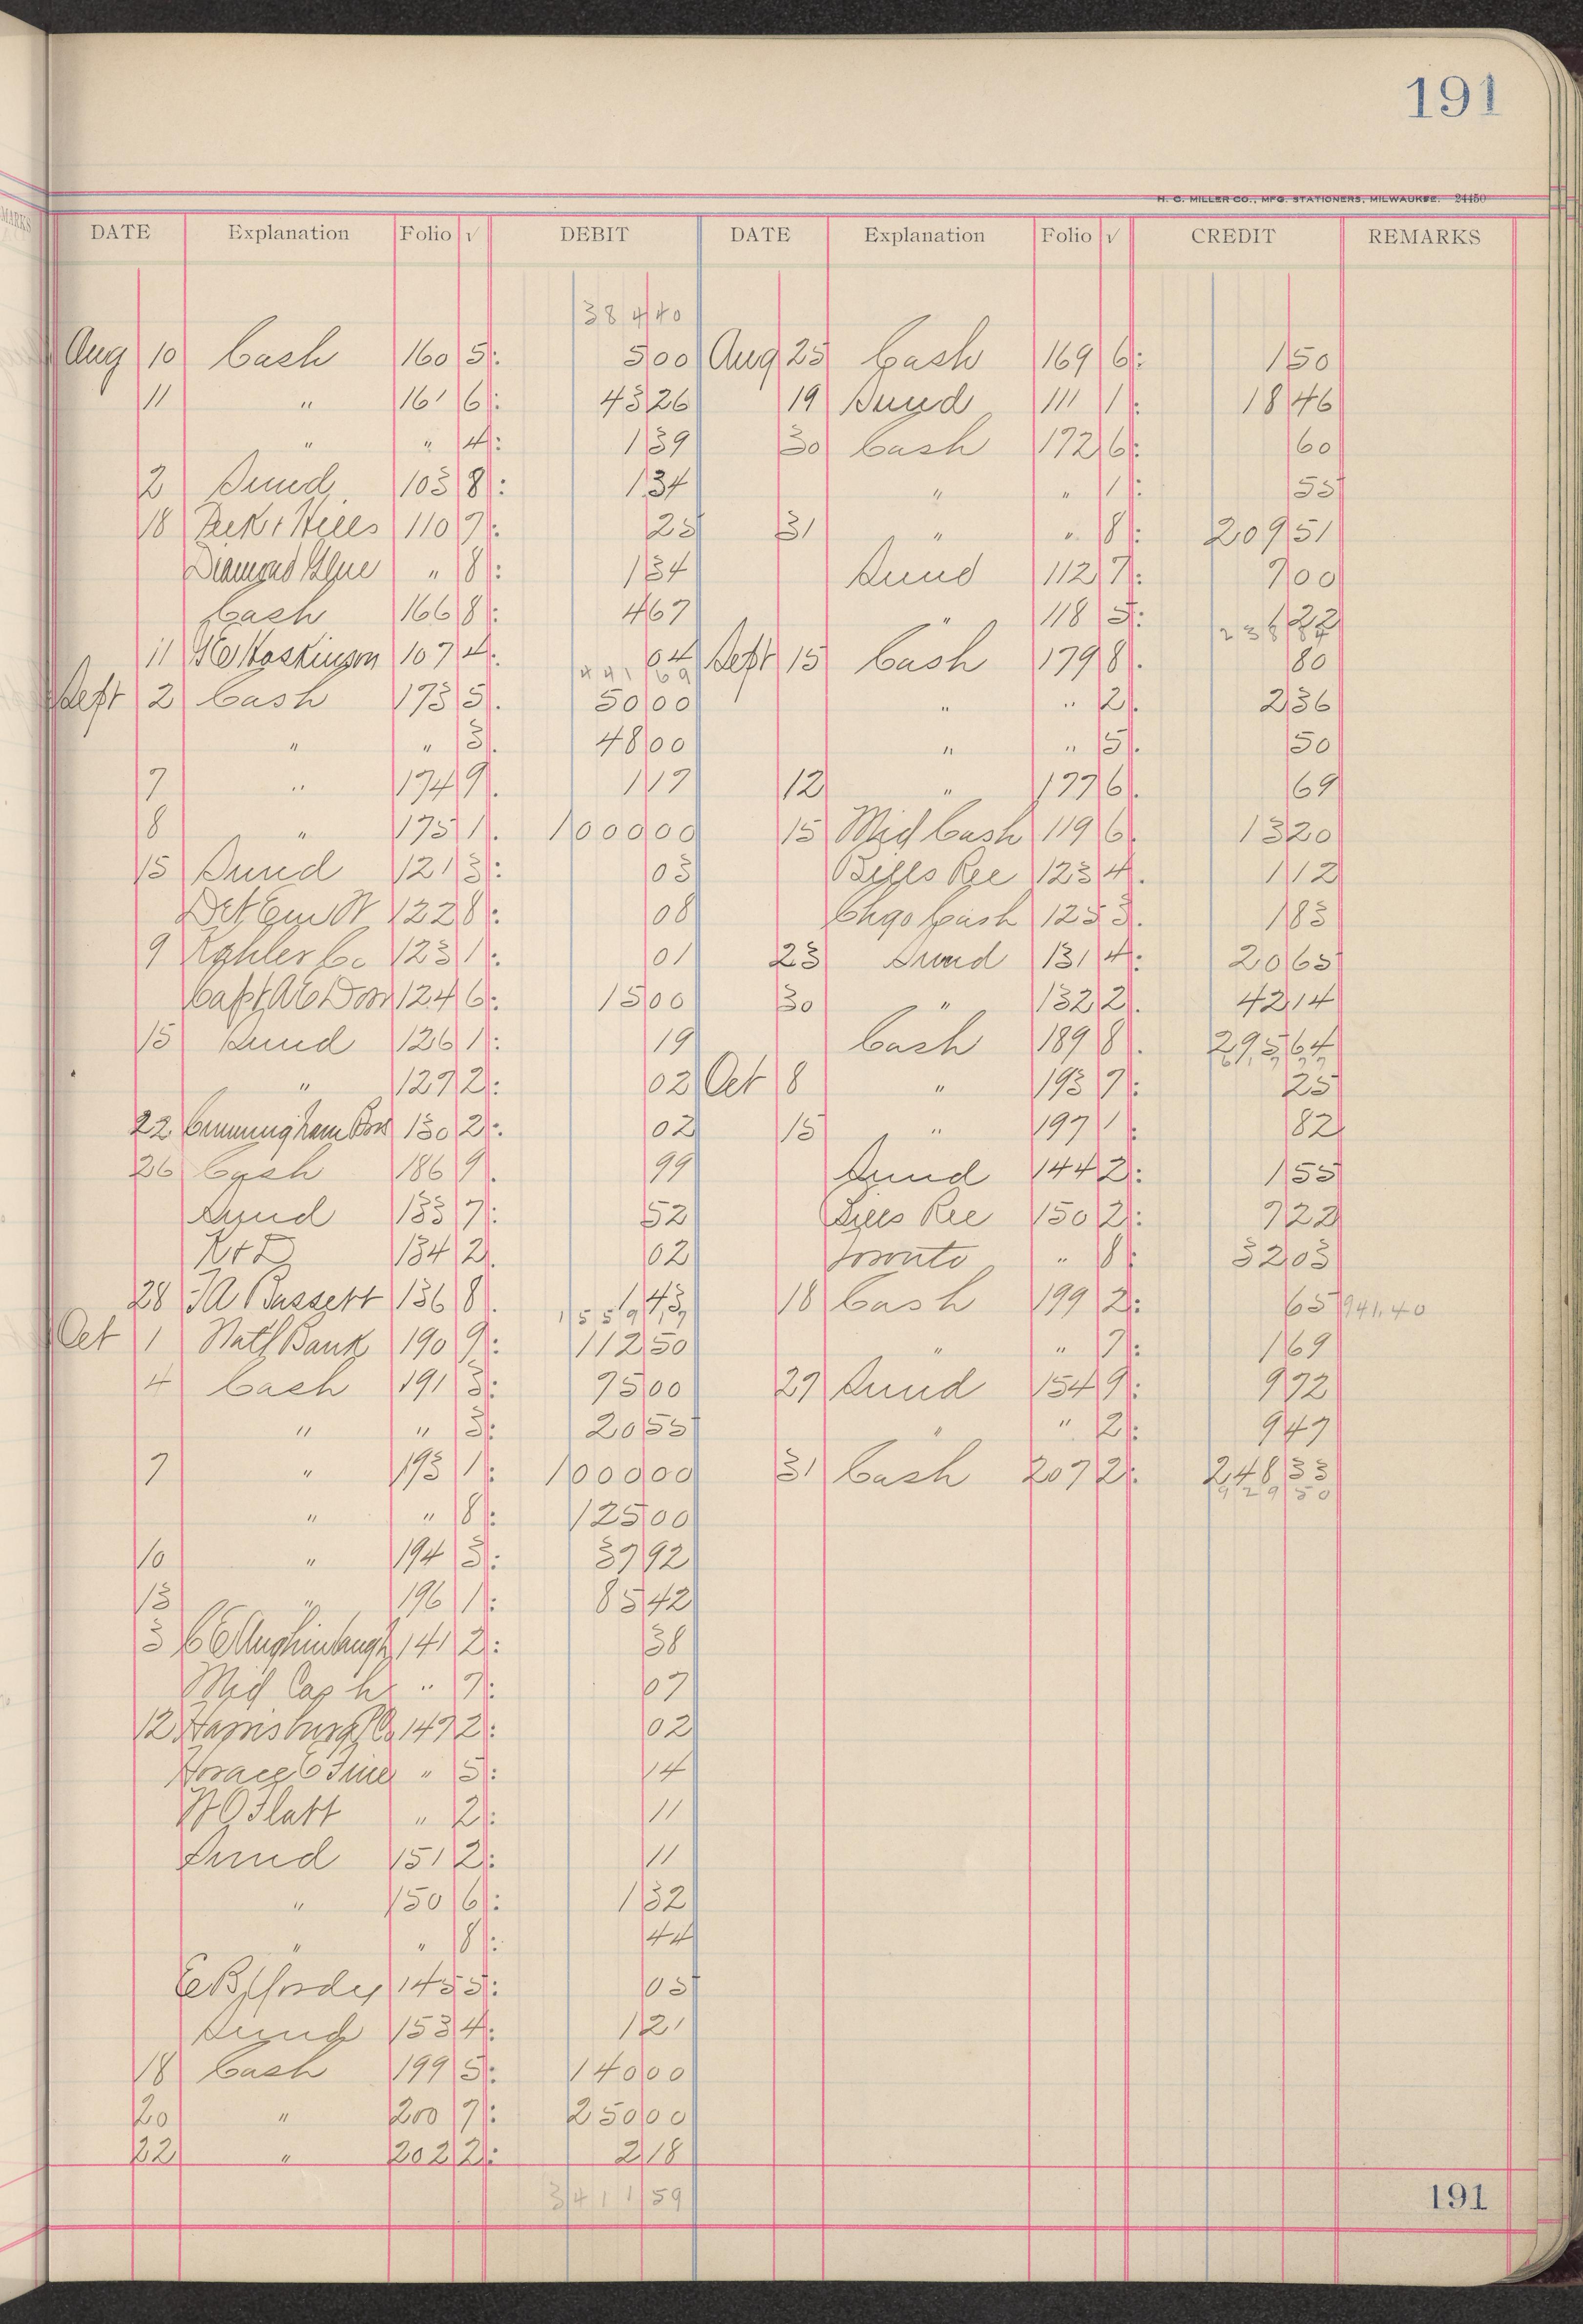 191
H. C. MILLER CO., MFG. STATIONERS, MILWAUKEE. 24450
MARKS
DATE Explanation Folio √ DEBIT DATE Explanation Folio √ CREDIT REMARKS
384 40
Aug 10 Cash 160 5 5 00 Aug 25 Cash 169 6 1 50
11 " 161 6 43 26 19 Sund 111 1 18 46
" " 4 1 39 30 Cash 172 6 60
2 Sund 103 8 1 34 " " 1 55
18 110 7 25 31 " " 8 209 51
Diamond Glue " 8 1 34 Sund 112 7 7 00
Cash 166 8 4 67 " 118 5
11 Hoskinson 107 4 64 Sept 15 Cash 179 8 80
441 69
Sept 2 Cash 173 5 50 00 " " 2 2 36
" " 3 48 00 " " 5 50
7 " 174 9 1 17 12 " 177 6 69
8 " 175 1 1000 00 15 Mid Cash 119 6 13 20
15 Sund 121 3 03 Bills Rec 123 4 1 12
122 8 08 Chgo Cash 125 3 1 83
9 Kohler Co 123 1 01 23 Sund 131 4 20 65
Capt 124 6 15 00 30 " 132 2 42 14
15 Sund 126 1 19 Cash 189 8 295 64
" 127 2 02 Oct 8 " 193 7 25
22 Cunningham Bros 130 2 02 15 " 197 1 82
26 Cash 186 9 99 Sund 144 2 1 55
Sund 133 7 52 Bills Rec 150 2 7 22
134 2 02 Toronto " 8 32 03
28 Bassett 136 8 18 Cash 199 2 65 941.40
Oct 1 Natl Bank 190 9 112 50 " " 7 1 69
4 Cash 191 3 75 00 29 Sund 154 9 9 72
" " 3 20 55 " " 2 9 47
7 " 193 1 1000 00 31 Cash 207 2 248 33
" " 8 125 00
10 " 194 3 37 92
13 " 196 1 85 42
3 141 2 38
Mid Cash " 7 07
12 Harrisburg 147 2 02
Horace " 5 14
" 2 11
Sund 151 2 11
" 150 6 1 32
" " 8 44
145 5 05
Sund 153 4 1 21
18 Cash 199 5 140 00
20 " 200 7 250 00
22 " 202 2 2 18
3411 59
191